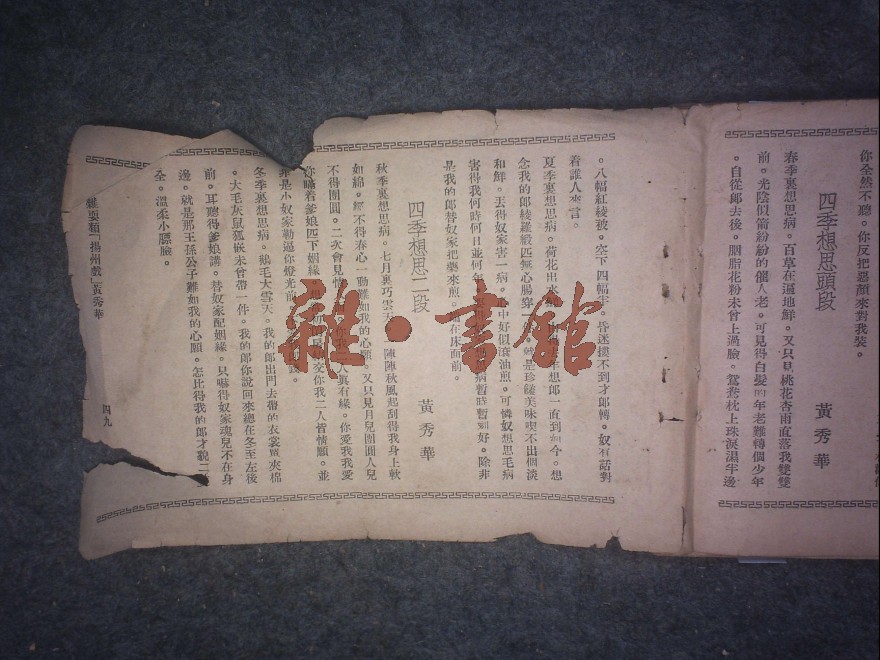 你全然不聽。你反把惡顏來對我裝。
四季想思頭段
黃秀華
春季裏想思病。百草在遍地鮮。又只見桃花杏雨直落我雙雙
前。光陰似箭紛紛的催人老。可見得白髮的年老難轉個少年
。自從郎去後。胭脂花粉未曾上過臉。鴛鴦枕上珠淚濕半邊
。八幅紅綾被。空下四幅半。昏迷摸不到才郎轉。奴有話對
着誰人來言。
夏季裏想思病。荷花出水 去年想郎一直到如今。想
念我的郎綾羅緞匹無心腸穿 就是珍饈美味喫不出個淡
和鮮。丟得奴家害一病。 中好似滾油煎。可憐奴想思毛病
害得我何時何日並何年。 病暫時暫 好。除非
是我的郎替奴家把藥來煎。 在床面前。
四季想思二段
黃秀華
秋季裏想思病。七月裏巧雲天。 陣陣秋風起刮得我身上軟
如綿。經不得春心一動難如我的心願。又只見月兒團圓人兒
不得團圓。二次會見情 人眞有緣。你愛我我愛
你瞞着爹娘匹下姻緣。 交你我二人皆情願。並
非是小奴家勒逼你燈光前
冬季裏想思病。鵝毛大雪天。我的郎出門去帶的衣裳單夾棉
。大毛灰鼠狐嵌未曾帶一件。我的郎你說回來總在冬至左後
前。耳聽得爹娘講。替奴家配姻緣。只嚇得奴家魂兒不在身
邊。就是那王孫公子難如我的心願。怎比得我的郎才貌二
全。溫柔小臉。
雜耍類「揚州戲」黃秀華
四九
雜·書館